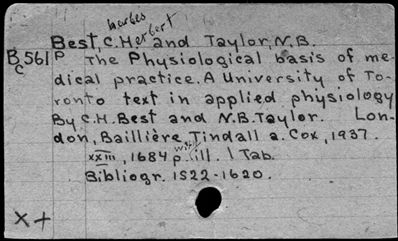 Charles
Best, C. Herbert and Taylor, N.B.
B561 P The Physiological basis of me-
C dical practice. A University of To-
ronto text in applied physiology
By C.H. Best and N.B. Taylor. Lon-
don, Baillière, Tindall a. Cox, 1937.
XXIII, 1684 p. with ill. 1 Tab.
Bibliogr. 1522-1620.
X+